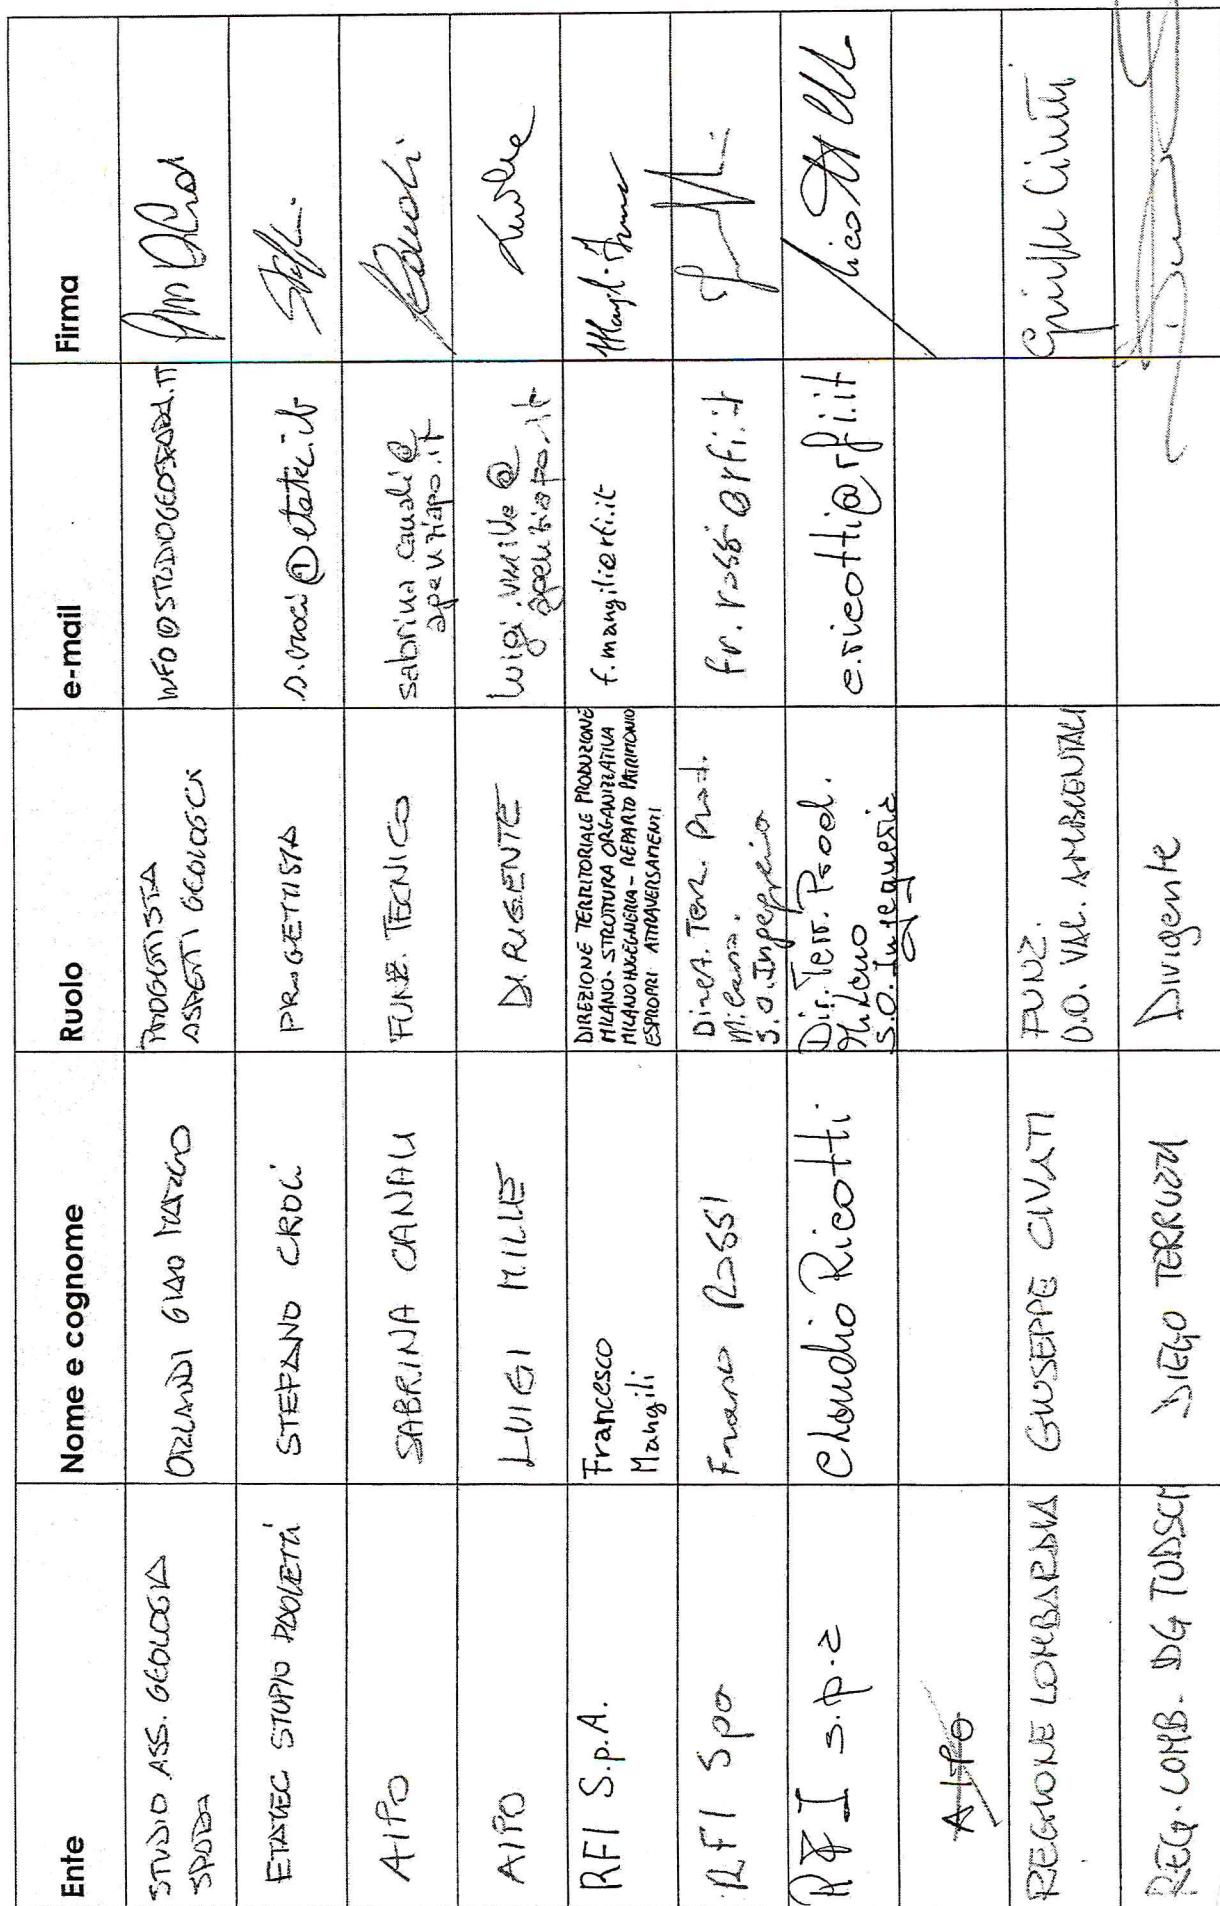 Ente Nome e cognome Ruolo e-mail Firma
STUDIO ASS. GEOLOGIA
SPADA
ORLANDI GIAN MARCO
PROGETTISTA
ASPETTI GEOLOGICI
INFO@STUDIOGEOSPADA.IT
ETATEC STUDIO PAOLETTI
STEFANO CROCI
PROGETTISTA
s.croci@etatec.it
AIPO
SABRINA CANALI
FUNZ. TECNICO
sabrina.canali@
agenziapo.it
AIPO
LUIGI MILLE
DIRIGENTE
luigi.mille@
agenziapo.it
RFI S.p.A.
Francesco
Mangili
DIREZIONE TERRITORIALE PRODUZIONE
MILANO - STRUTTURA ORGANIZZATIVA
MILANO INGEGNERIA - REPARTO PATRIMONIO
ESPROPRI ATTRAVERSAMENTI
f.mangili@rfi.it
RFI Spa
Franco Rossi
Diret. Terr. Prod.
Milano.
S.O. Ingegneria
fr.rossi@rfi.it
RFI s.p.a
Claudio Ricotti
Dir. Terr. Prod.
Milano
S.O. Ingegneria
c.ricotti@rfi.it
AIPO
REGIONE LOMBARDIA
GIUSEPPE CIVATI
FUNZ.
U.O. VAL. AMBIENTALI
Giuseppe Civati
REG. LOMB. DG TUDSCM
DIEGO TERRUZZI
Dirigente